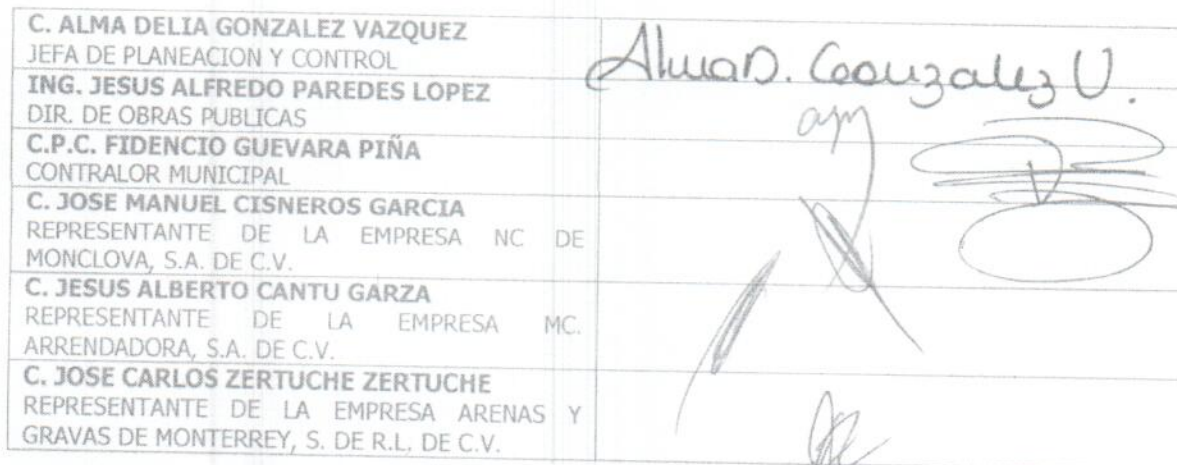 C. ALMA DELIA GONZALEZ VAZQUEZ
JEFA DE PLANEACION Y CONTROL
AlmaD. Gonzalez V.
ING. JESUS ALFREDO PAREDES LOPEZ
DIR. DE OBRAS PUBLICAS
C.P.C. FIDENCIO GUEVARA PIÑA
CONTRALOR MUNICIPAL
C. JOSE MANUEL CISNEROS GARCIA
REPRESENTANTE DE LA EMPRESA NC DE
MONCLOVA, S.A. DE C.V.
C. JESUS ALBERTO CANTU GARZA
REPRESENTANTE DE LA EMPRESA MC.
ARRENDADORA, S.A. DE C.V.
C. JOSE CARLOS ZERTUCHE ZERTUCHE
REPRESENTANTE DE LA EMPRESA ARENAS Y
GRAVAS DE MONTERREY, S. DE R.L. DE C.V.